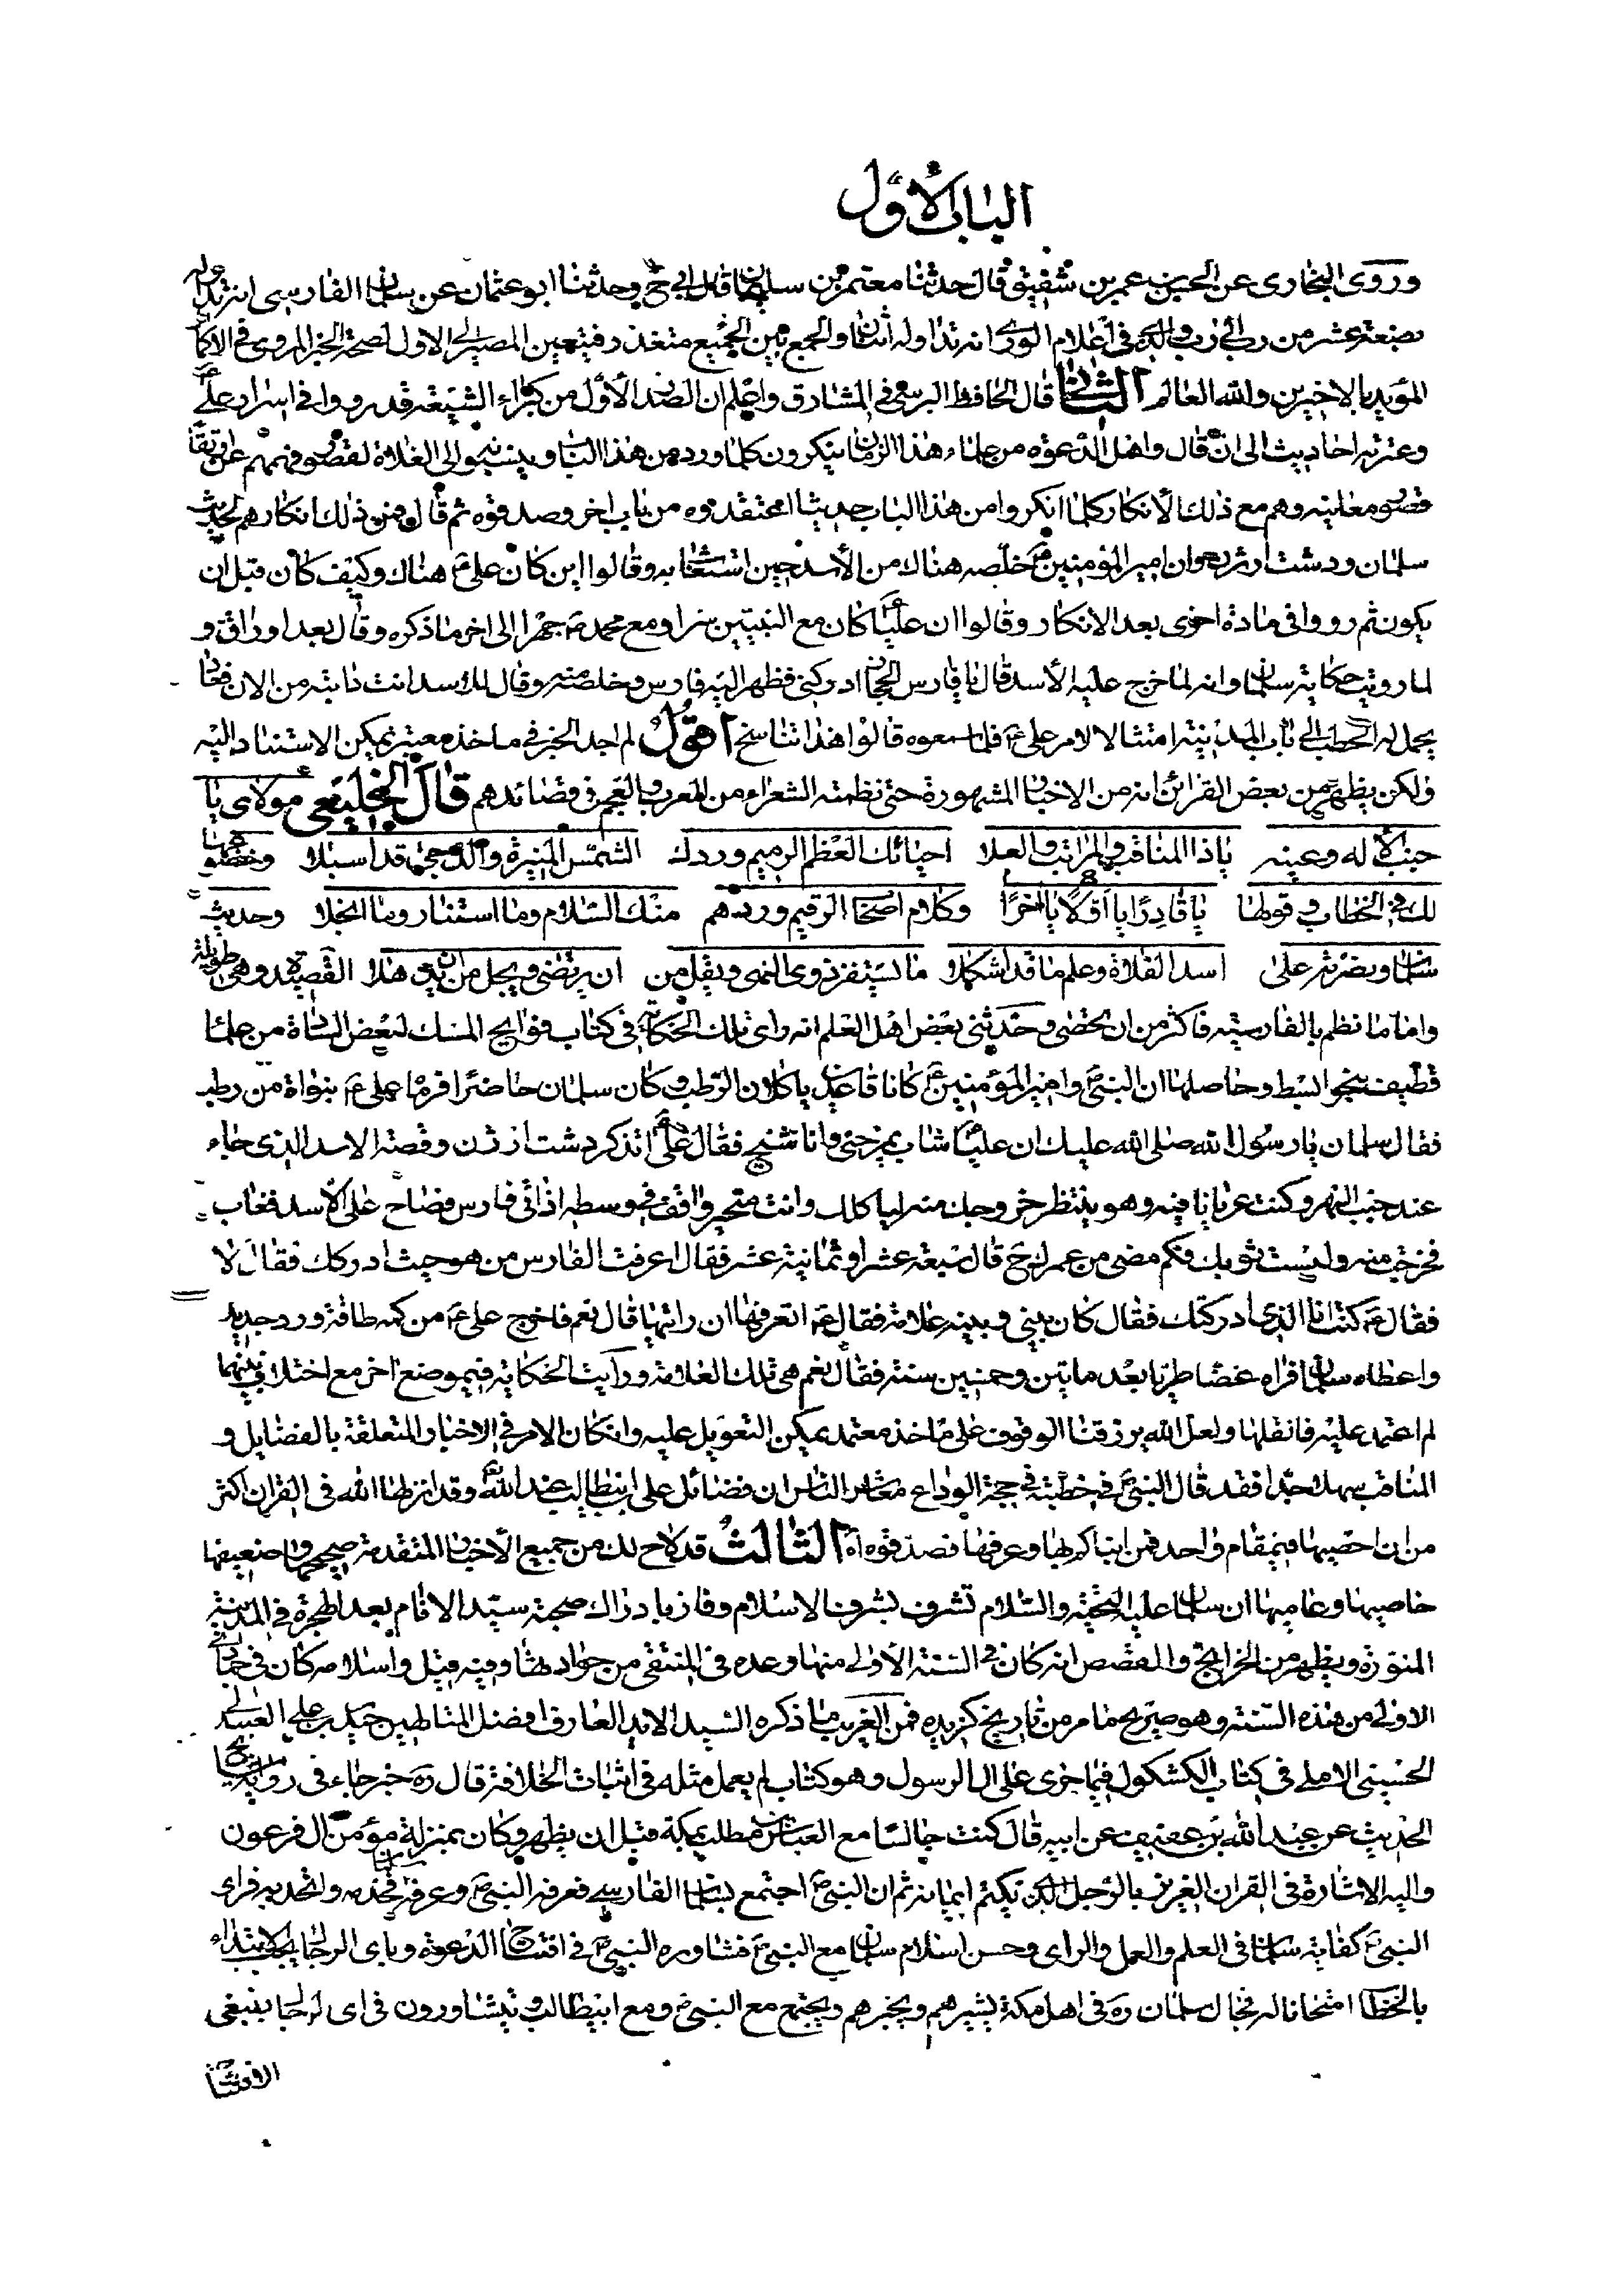 الباب الأول
وروى البخاري عن الحسين بن عمر بن شقيق قال حدثنا معتمر بن سليمان قال ابي ح وحدثنا ابو عثمان عن سلمان الفارسي انه تداوله
بضعة عشر من رب إلى رب و في اعلام الورى انه تداوله اثنان والجمع بين الجميع متعذر فيتعين المصير الى الاول لصحة الخبر المروي في الاكمال
المؤيد بالاخيرين والله العالم الثاني قال الحافظ البرسي في المشارق واعلم ان الصدر الأول من كبراء الشيعة قد رووا في اسرار علي
وعترته احاديث الى ان قال واهل الدعوة من علماء هذا الزمان ينكرون كلما ورد من هذا الباب وينسبه الى الغلاة لقصور فهمهم عن
قصور معانيه وهم مع ذلك الأنكار كلما انكروا من هذا الباب حديثا اعتقدوه من باب اخر وصدقوه ثم قال ومن ذلك انكارهم لحديث
سلمان ودشت ارژنه وان امير المؤمنين ع خلصه هناك من الأسد حين استغاث به وقالوا اين كان علي ع هناك وكيف كان قبل ان
يكون ثم رووا في مادة اخرى بعد الانكار وقالوا ان عليا ع كان مع النبيين سرا ومع محمد ص جهرا إلى اخر ما ذكره وقال بعد اوراق و
لما رويت حكاية سلمان وانه لما خرج عليه الأسد قال يا فارس الحجاز ادركني فظهر اليه فارس وخلصه منه وقال للاسد انت دابته من الان فعاد
يحمل له الحطب إلى باب المدينة امتثالا لامر علي ع فلما سمعوه قالوا هذا تناسخ اقول لم اجد الخبر في ماخذ معتبر يمكن الاستناد اليه
ولكن يظهر من بعض القرائن انه من الاخبار المشهورة حتى نظمته الشعراء من العرب والعجم في قصائدهم قال الخليعي مولاي يا
جنب الأله وعينه يا ذا المناقب والمراتب والعلا احيائك العظم الرميم وردك الشمس المنيرة والدجى قد اسبلا وخضوعها
لك في الخطاب وقولها يا قادرا يا اولا يا اخرا وكلام اصحاب الرقيم وردهم منك السلام وما استنار وما انجلا وحديث
سلمان ونصرته على اسد الفلاة وعلم ما قد اشكلا ما يستفز ذوى النهى ويقل من ان يرتضى ويجل من ان هذا القصيدة وهي طويلة
واما ما نظم بالفارسية فاكثر من ان يحصى وحدثني بعض اهل العلم انه راى تلك الحكاية في كتاب فوايح المسك لبعض السادة من علماء
قطيف بنحو ابسط وحاصلها ان النبي ص وامير المؤمنين ع كانا قاعدين ياكلان الرطب وكان سلمان حاضرا فرماه علي ع بنواة من رطب
فقال سلمان يا رسول الله صلى الله عليك ان عليا ع شاب يمزحني وانا شيخ فقال علي ع اتذكر دشت ارژن وقصة الاسد الذي جاء
عند جنب النهر وكنت عريانا فيه وهو ينتظر خروجك منه لياكلك وانت متحير واقف في وسطه اذ اتى فارس فصاح على الأسد فغاب
فخرجت منه ولبست ثوبك فكم مضى من عمرك ح قال سبعة عشر او ثمانية عشر فقال اعرفت الفارس من هو حيث ادركك فقال لا
فقال ع كنت انا الذي ادركتك فقال كان بيني وبينه علامة فقال ع اتعرفها ان رايتها قال نعم فاخرج علي ع من كمه طاقة ورد جديد
واعطاه سلمان فراه غضا طريا بعد ماتين وخمسين سنة فقال نعم هي تلك العلامة ورايت الحكاية في موضع اخر مع اختلاف بينهما
لم اعتمد عليه فانقلها ولعل الله يرزقنا الوقوف على ماخذ معتمد يمكن التعويل عليه وان كان الامر في الاخبار المتعلقة بالفضايل و
المناقب سهلا جدا فقد قال النبي ص في خطبته في حجة الوداع معاشر الناس ان فضائل علي بن ابيطالب عند الله وقد انزلها الله في القران اكثر
من ان احصيها في مقام واحد فمن انباكم بها وعرفها فصدقوه اه الثالث قد لاح لك من جميع الأخبار المتقدمة صحيحها وضعيفها
خاصيها وعاميها ان سلمان عليه التحية والسلام تشرف بشرف الاسلام وفاز بادراك صحبة سيد الانام بعد الهجرة في المدينة
المنورة ويظهر من الخرايج والقصص انه كان في السنة الأولى منها وعده في المنتقى من حوادثها وفيه قيل واسلامه كان في جمادى
الاولى من هذه السنة وهو صريح ما مر من تاريخ گزيده فمن الغريب ما ذكره السيد الايد العارف افضل المتالهين حيدر بن علي العبيدلي
الحسيني الاملي في كتاب الكشكول فيما جرى على ال الرسول وهو كتاب لم يعمل مثله في اثبات الخلافة قال ره خبر جاء في
الحديث عن عبد الله بن عفيف عن ابيه قال كنت جالسا مع العباس بن مطلب بمكة قبل ان يظهر وكان بمنزلة مؤمن ال فرعون
واليه الاشارة في القران العزيز بالرجل يكتم ايمانه ثم ان النبي ص اجتمع بسلمان الفارسي فعرفه النبي ص وعرفه واتحد به فراى
النبي ص كفاية سلمان في العلم والعمل والراى وحسن اسلام سلمان مع النبي ص فشاوره النبي ص في افتتاح الدعوة وباى الرجال يجب الابتداء
بالخطاب امتحانا له فجال سلمان ره في اهل مكة يشيرهم ويخبرهم ويجتمع مع النبي ص ومع ابيطالب ويتشاورون في اى الرجال ينبغى